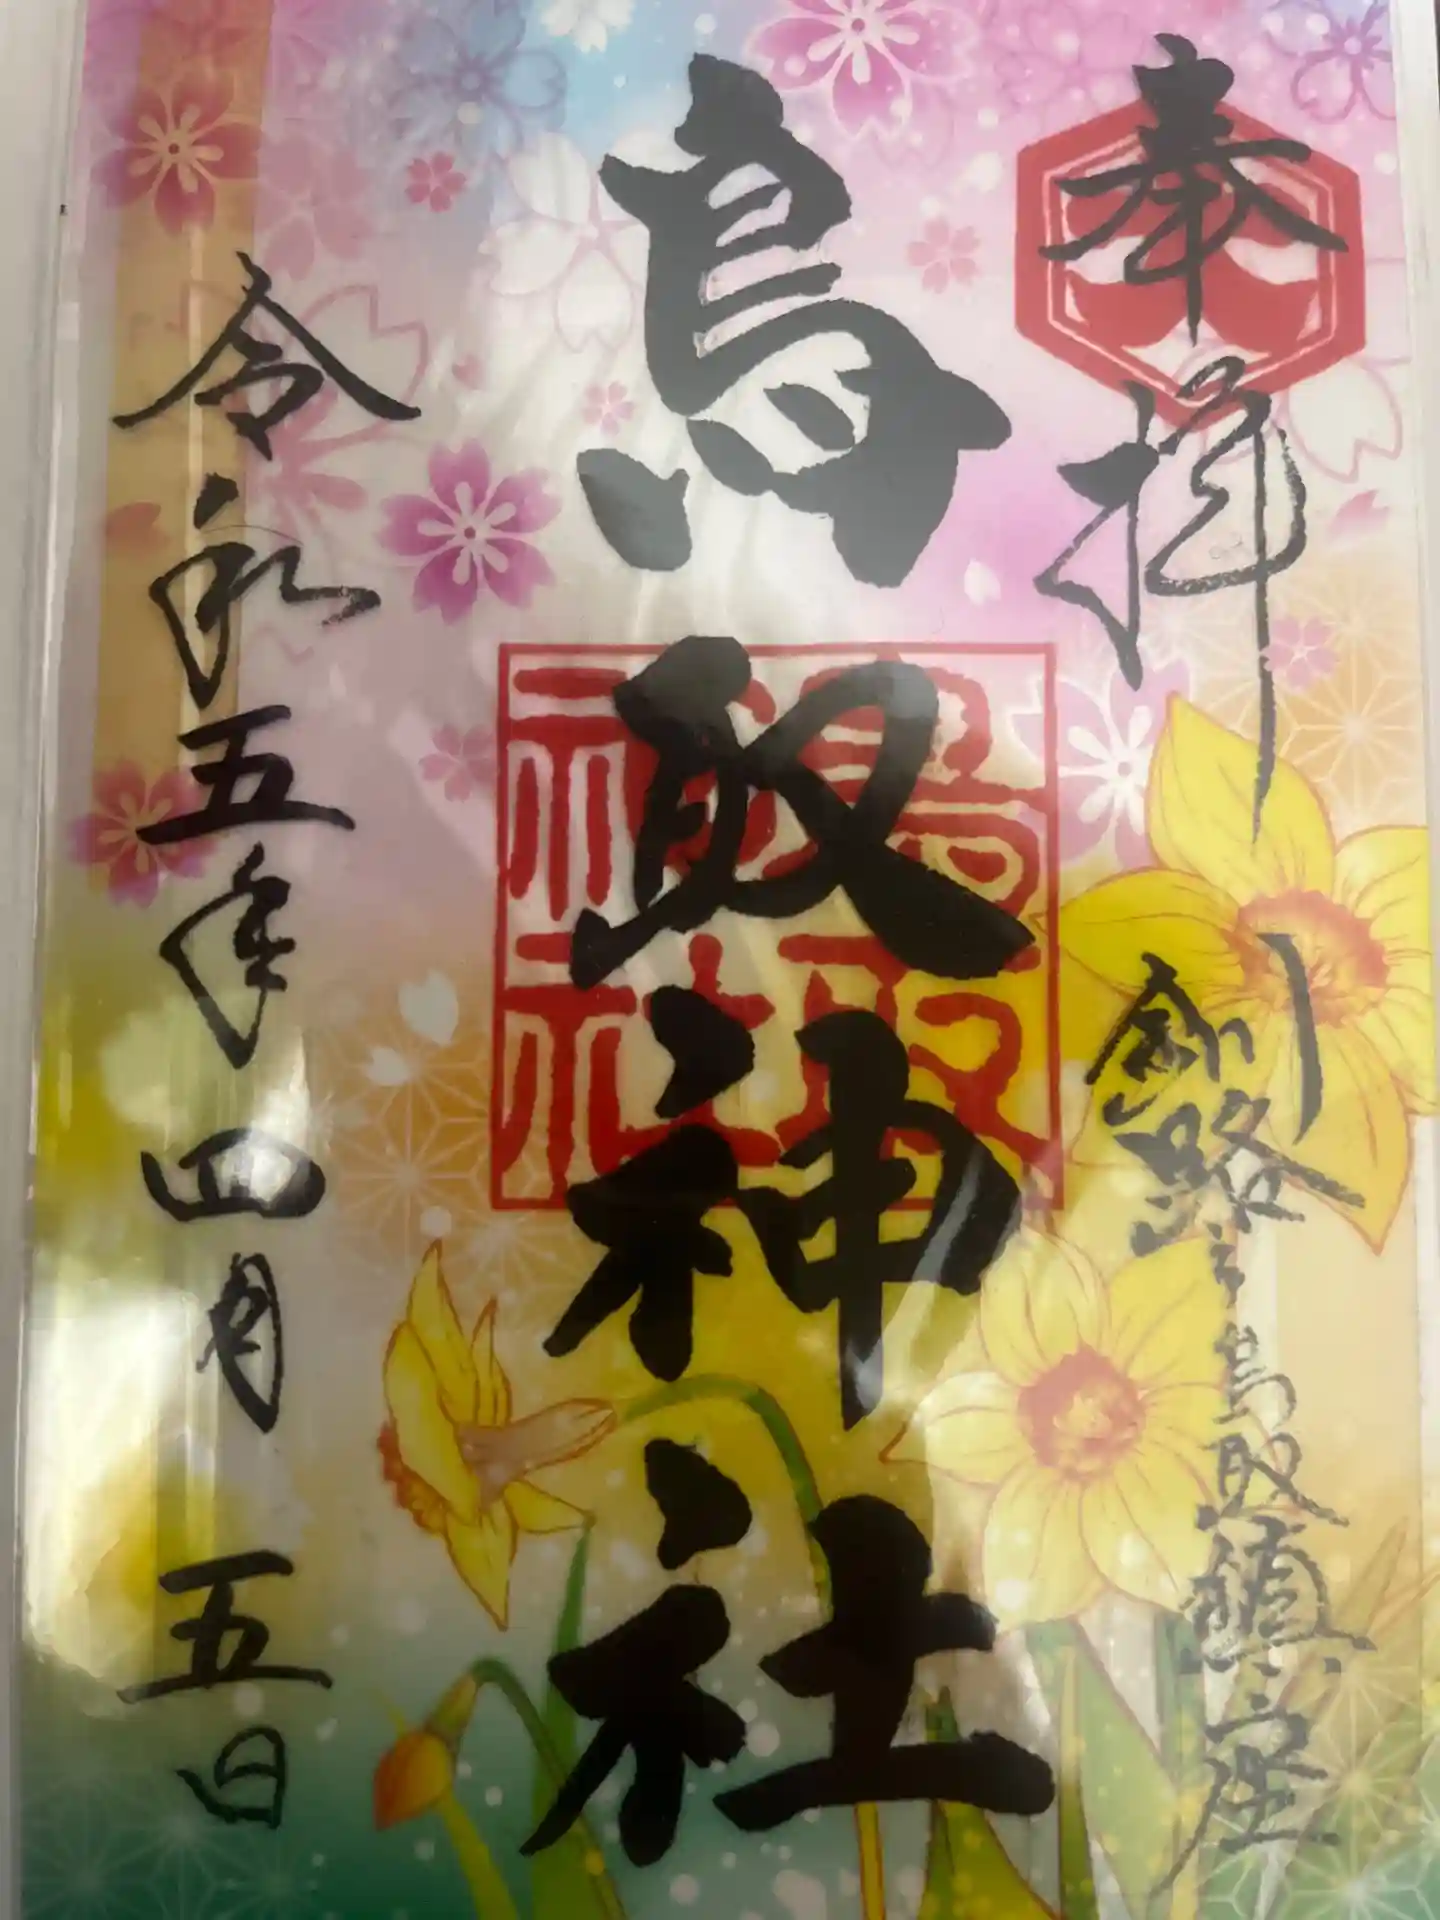 奉拝
釧路市鳥取鎮座
鳥取神社
鳥取神社
令和五年四月五日